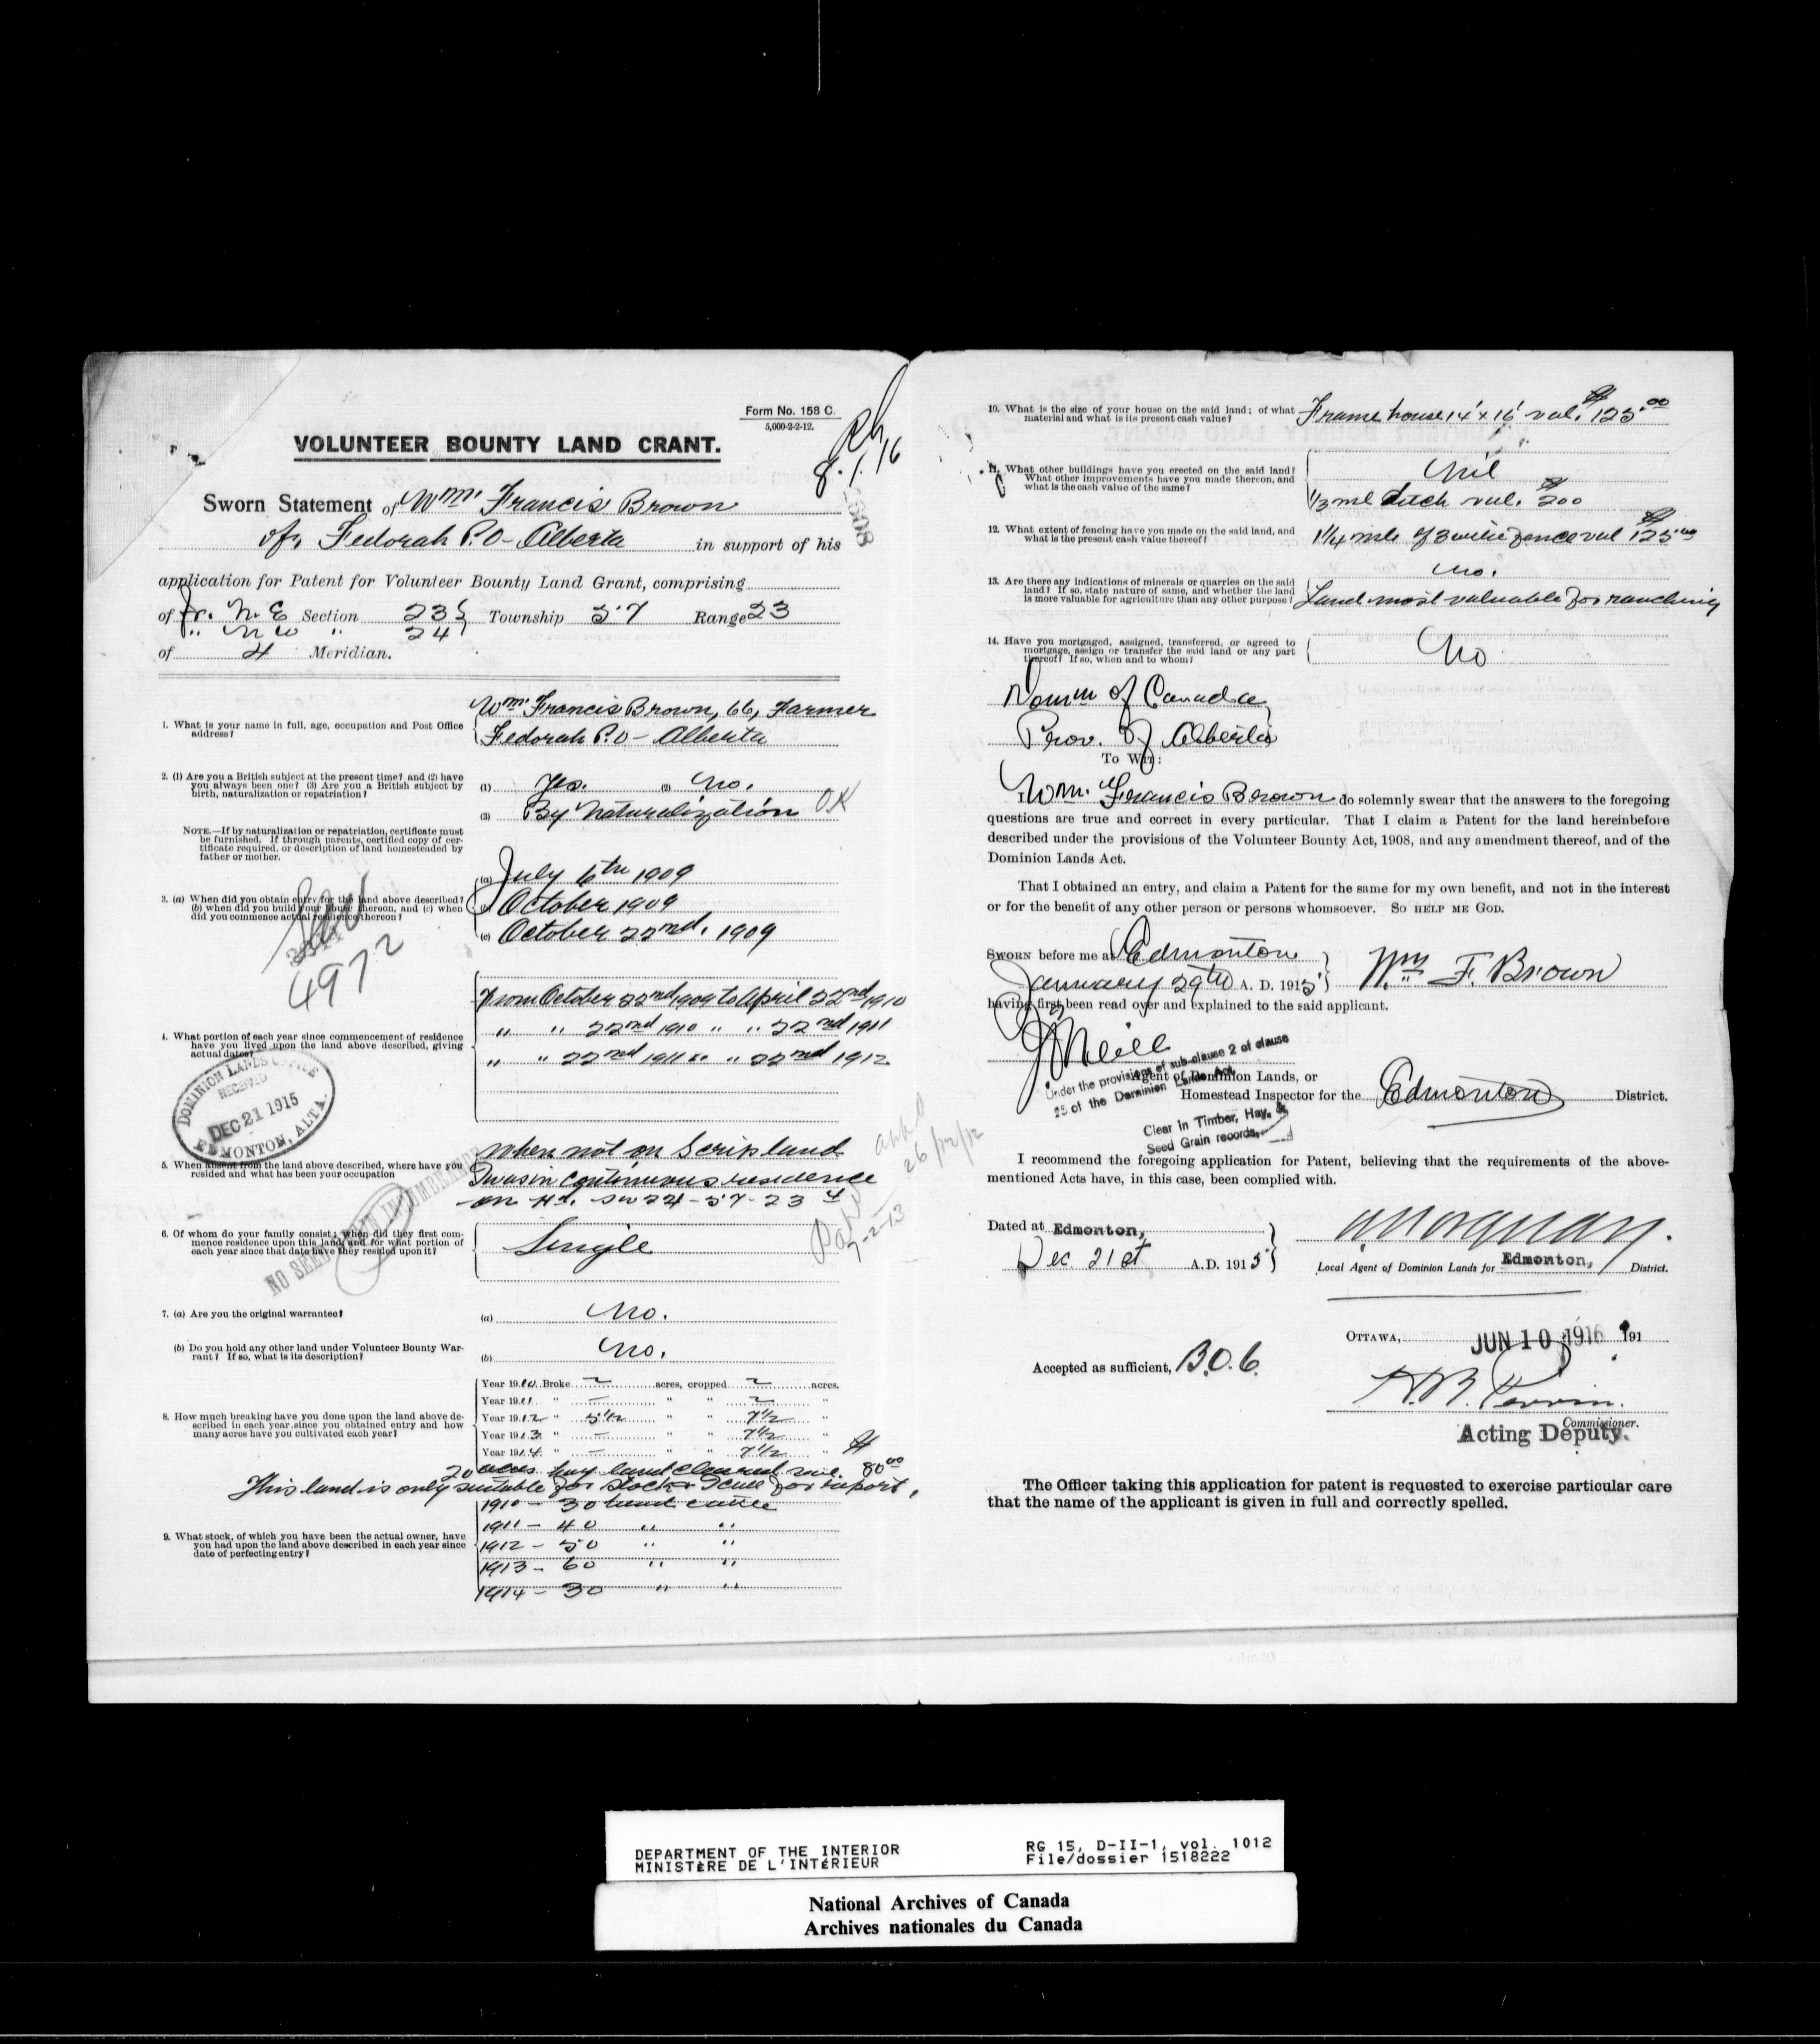 Form No. 158 C.
5,000-2-2-12.
VOLUNTEER BOUNTY LAND GRANT.
8.1.16
Sworn Statement of Wm. Francis Brown
of, Fedorah P.O - Alberta in support of his
application for Patent for Volunteer Bounty Land Grant, comprising
of Fr. N.E Section 23 } Township 57 Range 23
" N W " 24
of 4 Meridian.
1. What is your name in full, age, occupation and Post Office
address?
Wm. Francis Brown, 66, Farmer
Fedorah P.O - Alberta
2. (1) Are you a British subject at the present time? and (2) have
you always been one? (3) Are you a British subject by
birth, naturalization or repatriation?
(1) Yes. (2) No.
(3) By Naturalization OK
NOTE.—If by naturalization or repatriation, certificate must
be furnished. If through parents, certified copy of cer-
tificate required, or description of land homesteaded by
father or mother.
3. (a) When did you obtain entry for the land above described?
(b) when did you build your house thereon, and (c) when
did you commence actual residence thereon?
(a) July 6th 1909
(b) October 1909
(c) October 22nd. 1909
4972
4. What portion of each year since commencement of residence
have you lived upon the land above described, giving
actual dates?
From October 22nd 1909 to April 22nd 1910
" " 22nd 1910 " " 22nd 1911
" " 22nd 1911 " " 22nd 1912
DOMINION LANDS OFFICE
RECEIVED
DEC 21 1915
EDMONTON, ALTA.
5. When absent from the land above described, where have you
resided and what has been your occupation
When not on Scrip land
I was in continuous residence
on Hd. SW 24 - 57 - 23 4
26/12/12
7-2-13
6. Of whom do your family consist; when did they first com-
mence residence upon this land, and for what portion of
each year since that date have they resided upon it?
Single
NO SEED GRAIN INCUMBRANCE
7. (a) Are you the original warrantee?
(a) No.
(b) Do you hold any other land under Volunteer Bounty War-
rant? If so, what is its description?
(b) No.
8. How much breaking have you done upon the land above de-
scribed in each year since you obtained entry and how
many acres have you cultivated each year?
Year 1910. Broke 2 acres, cropped 2 acres.
Year 1911 " — " " 2 "
Year 1912 " 5 1/2 " " 7 1/2 "
Year 1913 " — " " 7 1/2 "
Year 1914 " — " " 7 1/2 "
20 acres hay land cleared val. $80.00
This land is only suitable for stock
9. What stock, of which you have been the actual owner, have
you had upon the land above described in each year since
date of perfecting entry?
1910 - 30 head cattle
1911 - 40 " "
1912 - 50 " "
1913 - 60 " "
1914 - 30 " "
10. What is the size of your house on the said land; of what
material and what is its present cash value?
Frame house 14' x 16' val. $125.00
11. What other buildings have you erected on the said land?
What other improvements have you made thereon, and
what is the cash value of the same?
Nil
1/3 ml ditch val. $200
12. What extent of fencing have you made on the said land, and
what is the present cash value thereof?
1 1/4 mle of 3 wire fence val $125.00
13. Are there any indications of minerals or quarries on the said
land? If so, state nature of same, and whether the land
is more valuable for agriculture than any other purpose?
No.
Land most valuable for ranching
14. Have you mortgaged, assigned, transferred, or agreed to
mortgage, assign or transfer the said land or any part
thereof? If so, when and to whom?
No
Domn of Canada
Prov. of Alberta
To Wit:
I Wm. Francis Brown do solemnly swear that the answers to the foregoing
questions are true and correct in every particular. That I claim a Patent for the land hereinbefore
described under the provisions of the Volunteer Bounty Act, 1908, and any amendment thereof, and of the
Dominion Lands Act.
That I obtained an entry, and claim a Patent for the same for my own benefit, and not in the interest
or for the benefit of any other person or persons whomsoever. SO HELP ME GOD.
SWORN before me at Edmonton
January 29th A. D. 1915
Wm F. Brown
having first been read over and explained to the said applicant.
Under the provisions of sub-clause 2 of clause
25 of the Dominion Lands Act.
Agent of Dominion Lands, or
Homestead Inspector for the Edmonton District.
Clear in Timber, Hay, &
Seed Grain records.
I recommend the foregoing application for Patent, believing that the requirements of the above-
mentioned Acts have, in this case, been complied with.
Dated at Edmonton,
Dec. 21st A.D. 1915
Local Agent of Dominion Lands for Edmonton, District.
OTTAWA, JUN 10 1916 191
Accepted as sufficient, B.O.6.
Commissioner.
Acting Deputy.
The Officer taking this application for patent is requested to exercise particular care
that the name of the applicant is given in full and correctly spelled.
DEPARTMENT OF THE INTERIOR
MINISTÈRE DE L'INTÉRIEUR
RG 15, D-II-1, vol. 1012
File/dossier 1518222
National Archives of Canada
Archives nationales du Canada